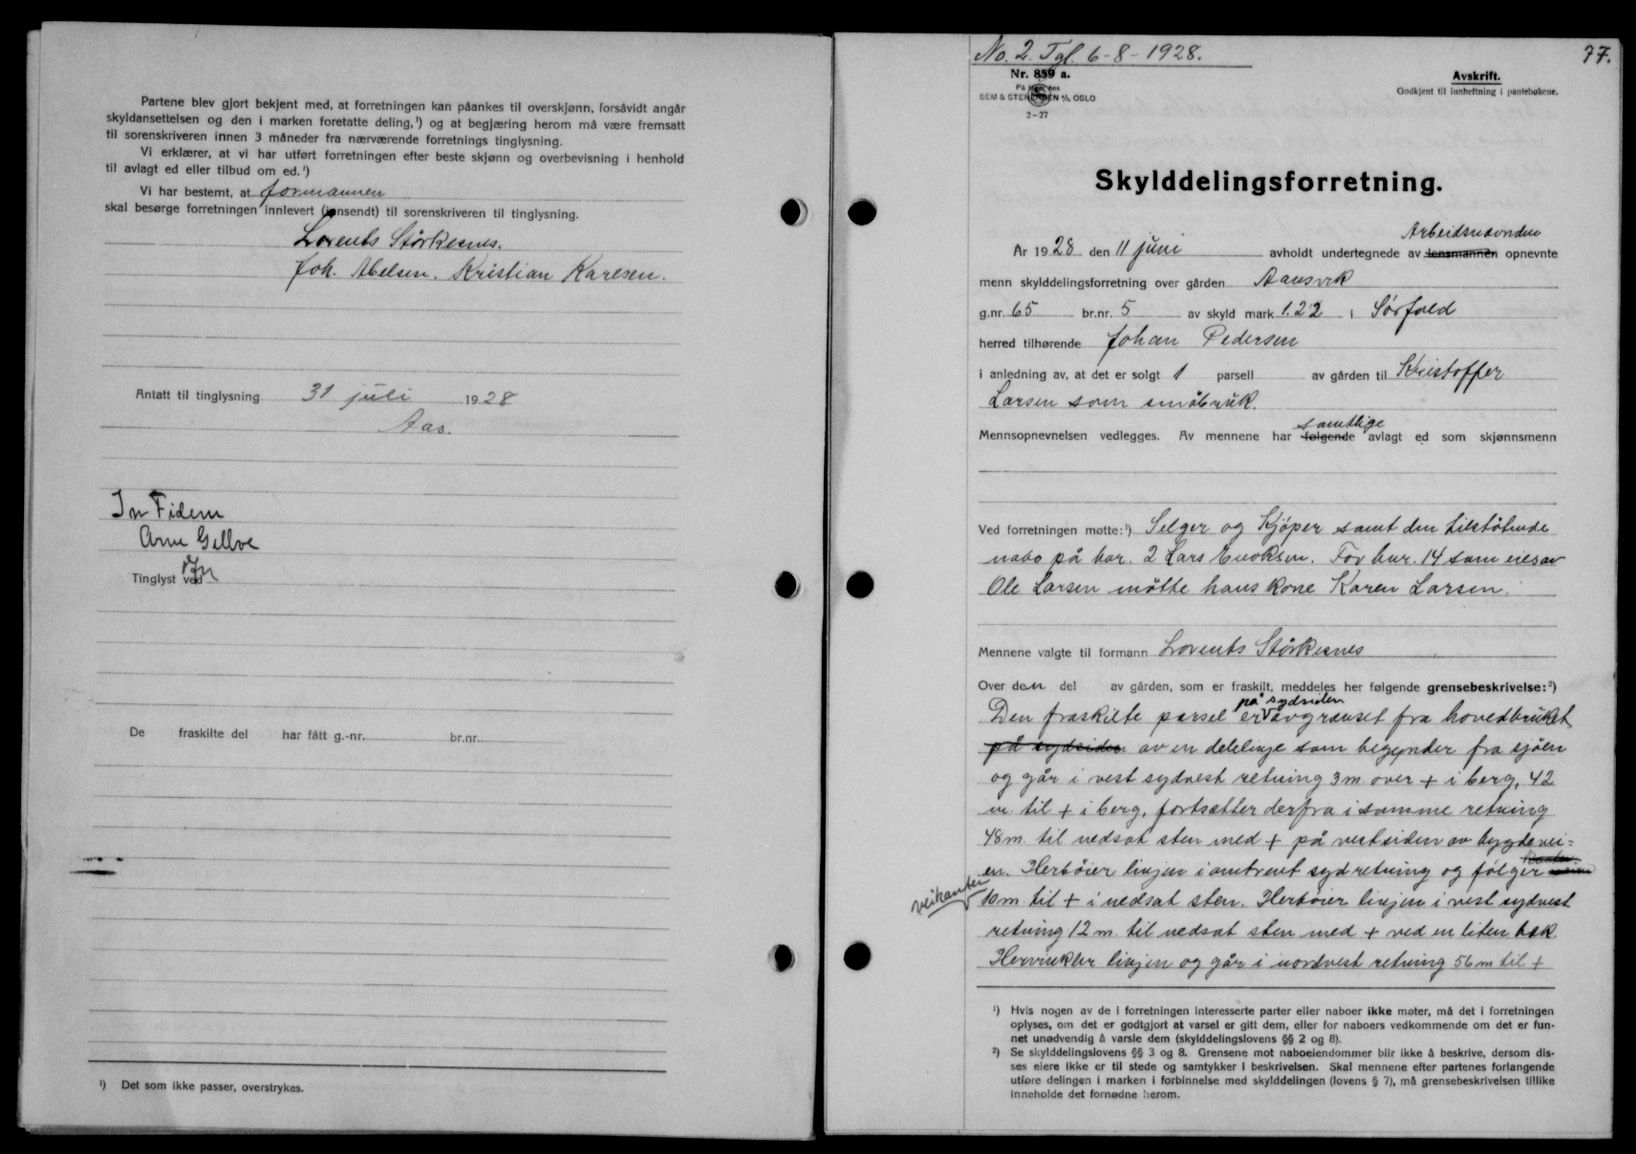 Partene blev gjort bekjent med, at forretningen kan påankes til overskjønn, forsåvidt angår
skyldansettelsen og den i marken foretatte deling,¹) og at begjæring herom må være fremsatt
til sorenskriveren innen 3 måneder fra nærværende forretnings tinglysning.
Vi erklærer, at vi har utført forretningen efter beste skjønn og overbevisning i henhold
til avlagt ed eller tilbud om ed.¹)
Vi har bestemt, at formannen
skal besørge forretningen innlevert (innsendt) til sorenskriveren til tinglysning.
Lorents Störkesnes.
Joh. Abelsen. Kristian Karlsen.
Antatt til tinglysning 31 juli 1928
Aas.
In Fidem
Arne Gellve
Tinglyst ved
De fraskilte del har fått g.-nr. br.nr.
¹) Det som ikke passer, overstrykes.
No. 2. Tgl. 6-8-1928.
77.
Nr. 859 a.
SEM & STENERSEN A/S, OSLO
2-27
Avskrift.
Godkjent til innheftning i pantebøkene.
Skylddelingsforretning.
Arbeidsnævnden
År 1928 den 11 juni avholdt undertegnede av lensmannen opnevnte
menn skylddelingsforretning over gården Aansvik
g.nr. 65 br.nr. 5 av skyld mark 1.22 i Sörfold
herred tilhørende Johan Pedersen
i anledning av, at det er solgt 1 parsell av gården til Kristoffer
Larsen som småbruk.
samtlige
Mennsopnevnelsen vedlegges. Av mennene har følgende avlagt ed som skjønnsmenn
Ved forretningen møtte:¹) Selger og Kjöper samt den tilstötende
nabo på bnr. 2 Lars Enoksen. For bnr. 14 som eies av
Ole Larsen mötte hans kone Karen Larsen.
Mennene valgte til formann Lorents Störkesnes
Over den del av gården, som er fraskilt, meddeles her følgende grensebeskrivelse:²)
på sydsiden
Den fraskilte parsel er avgrænset fra hovedbruket
på sydsiden av en delelinje som begynder fra sjöen
og går i vest sydvest retning 3 m over + i berg, 42
m. til + i berg, fortsætter derfra i samme retning
48 m. til nedsat sten med + på vestsiden av bygdevei-
en. Herböier linjen i omtrent syd retning og fölger
veikanten
10 m til + i nedsat sten. Herböier linjen i vest sydvest
retning 12 m. til nedsat sten med + ved en liten bæk.
Hervinkler linjen og går i nordvest retning 56 m til +
¹) Hvis nogen av de i forretningen interesserte parter eller naboer ikke møter, må det i forretningen
oplyses, om det er godtgjort at varsel er gitt dem, eller for naboers vedkommende om det er fun-
net unødvendig å varsle dem (skylddelingslovens §§ 2 og 8).
²) Se skylddelingslovens §§ 3 og 8. Grensene mot naboeiendommer blir ikke å beskrive, dersom dis-
ses eiere ikke er til stede og samtykker i beskrivelsen. Skal mennene efter partenes forlangende
utføre delingen i marken i forbinnelse med skylddelingen (lovens § 7), må grensebeskrivelsen tillike
inneholde det fornødne herom.